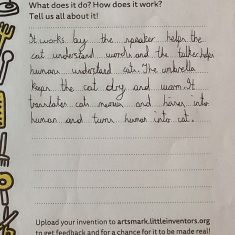 What does it do? How does it work?
Tell us all about it!
It works by the speaker helps the
cat understand words and the talker helps
humans understand cats. The umbrella
keeps the cat dry and warm. It
translates cats meows and hisses into
human and turns human into cat.
Upload your invention to artsmark.littleinventors.org
to get feedback and for a chance for it to be made real!